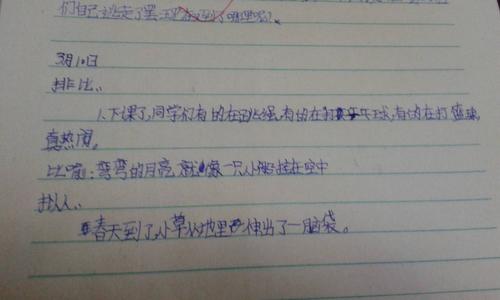 们自己逃走了罢:现在到了哪里呢?
3月10日
排比:
1.下课了,同学们有的在跳绳,有的在打乒乓球,有的在打篮球,
真热闹。
比喻:弯弯的月亮就像一只小船挂在空中
拟人、
春天到了,小草从地里伸出了一脑袋。